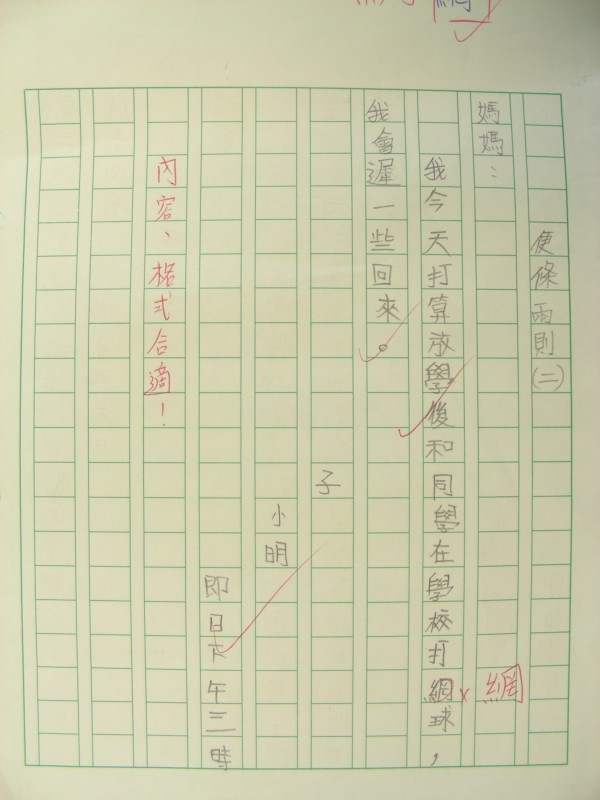 便條兩則(二)
媽媽：
我今天打算放學後和同學在學校打網球，
網
我會遲一些回來。
子
小明
即日下午三時
內容、格式合適！